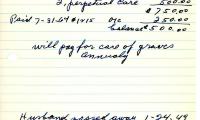 2, perpetual care 500.00
$ 750.00
Paid 7-31-64 #1415 o/c 250.00
balance $500.00
will pay for care of graves
annualy
Husband passed away 1-24.49